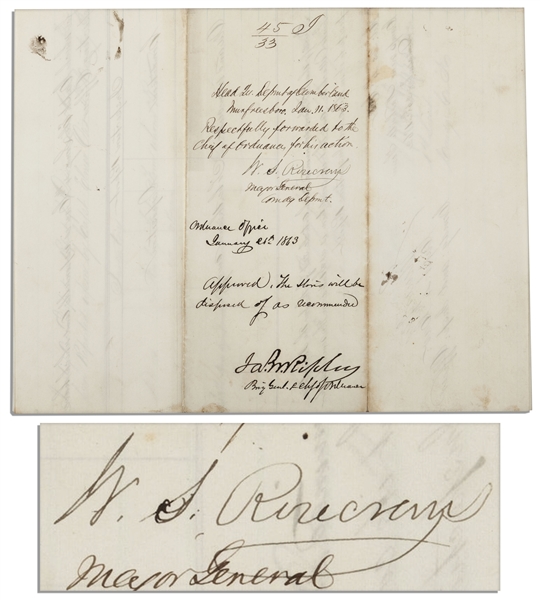 45 I
33
Head Qr. Depmt of Cumberland
Murfreesboro, Jan. 11. 1863.
Respectfully forwarded to the
Chief of Ordnance for his action
W. S. Rosecrans
Major General
Comdg Depmt.
Ordnance Office
January 21st 1863
Approved. The stores will be
disposed of as recommended
Ja. W. Ripley
Brig Genl. & Chf of Ordnance
W. S. Rosecrans
Major General